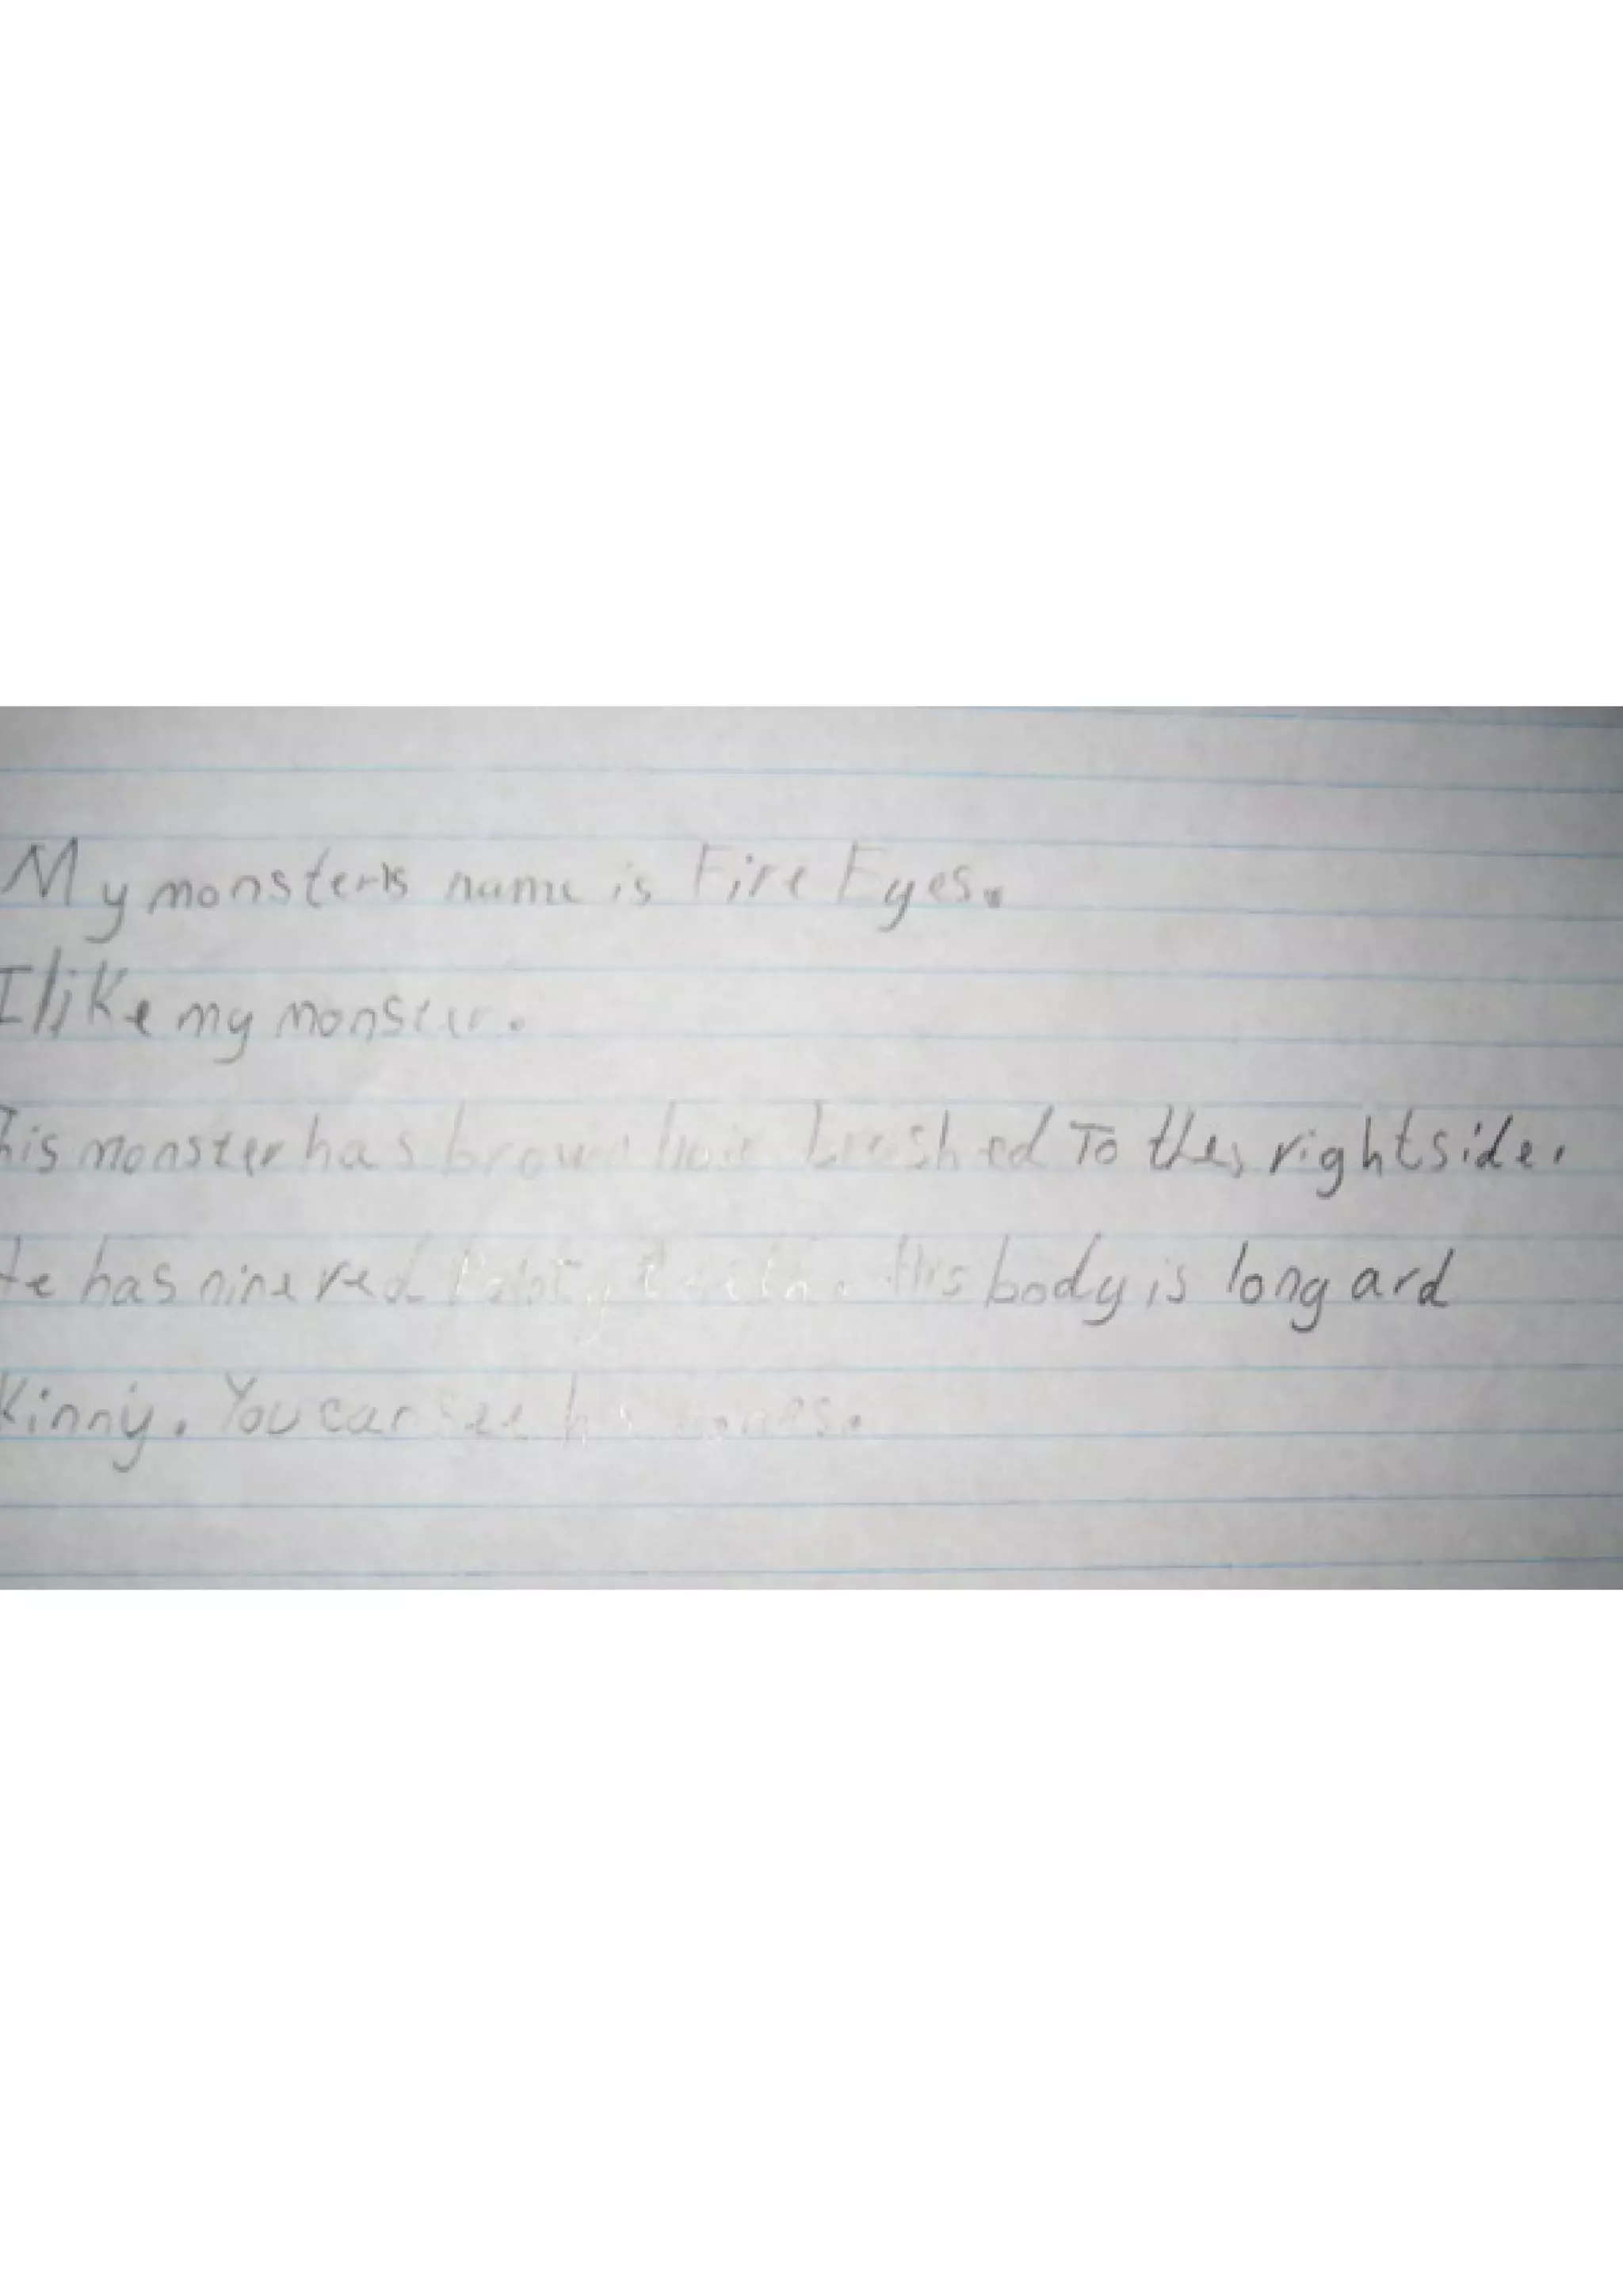 My monster's name is Fire Eyes.
I like my monster.
This monster has brown hair brushed To the right side.
He has nine red Pointy teeth. His body is long and
Kinny. You can see his bones.